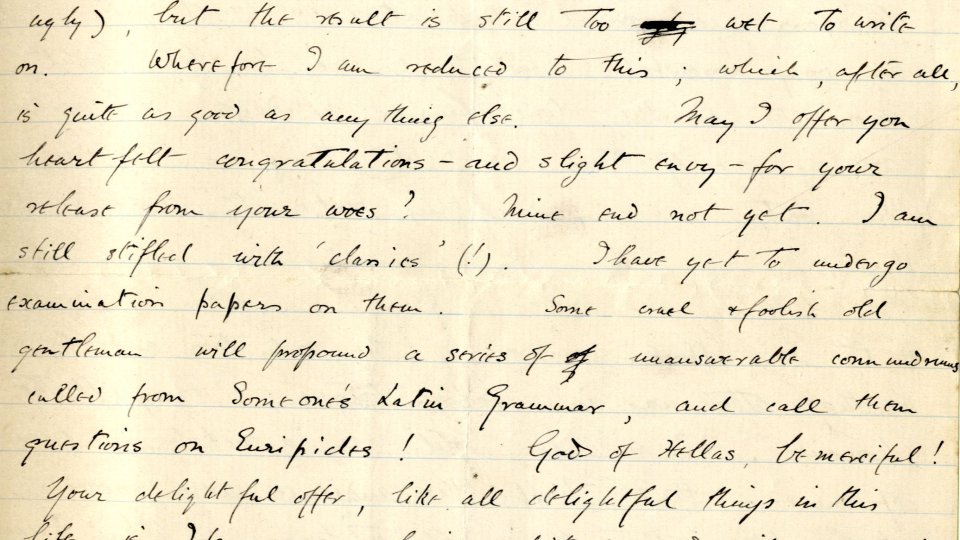 ugly), but the result is still too wet to write
on. Wherefore I am reduced to this; which, after all,
is quite as good as anything else. May I offer you
heart-felt congratulations – and slight envy – for your
release from your woes? Mine end not yet. I am
still stifled with 'classics' (!). I have yet to undergo
examination papers on them. Some cruel & foolish old
gentleman will propound a series of unanswerable conundrums
culled from Someone's Latin Grammar, and call them
questions on Euripides! Gods of Hellas, be merciful!
Your delightful offer, like all delightful things in this
life is